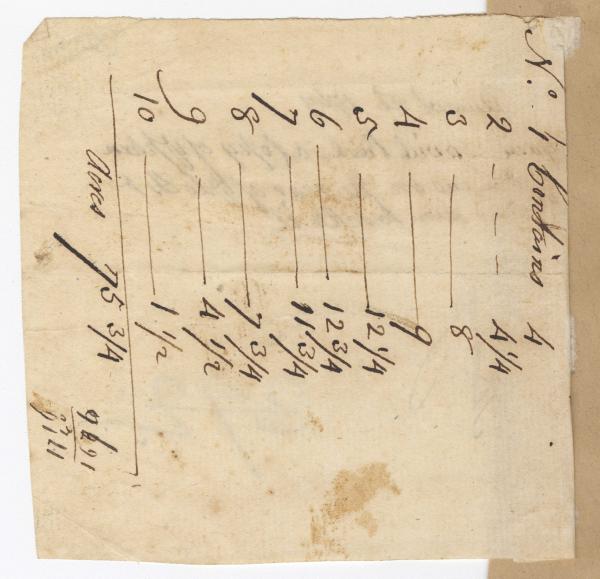 No. 1 Contains 4
2 - - - 4 1/4
3 — 8
4 — 9
5 — 12 1/4
6 — 12 3/4
7 — 11 3/4
8 — 7 3/4
9 — 4 1/2
10 — 1 1/2
Acres 75 3/4